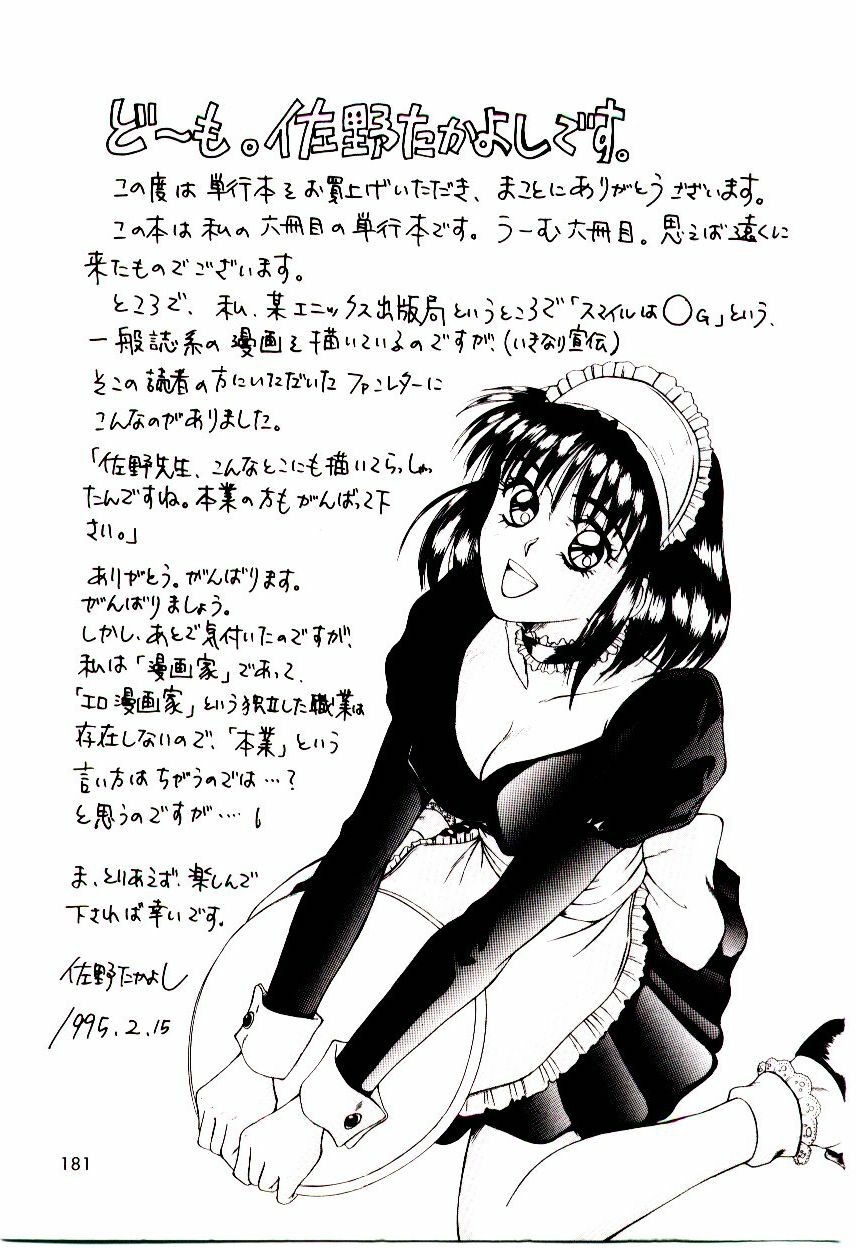 ど〜も。佐野たかよしです。
この度は単行本をお買上げいただき、まことにありがとうございます。
この本は私の六冊目の単行本です。うーむ六冊目。思えば遠くに
来たものでございます。
ところで、私、某エニックス出版局というところで「スマイルは◯G」という、
一般誌系の漫画を描いているのですが、(いきなり宣伝)
そこの読者の方にいただいたファンレターに
こんなのがありました。
「佐野先生、こんなとこにも描いてらっしゃっ
たんですね。本業の方もがんばって下
さい。」
ありがとう。がんばります。
がんばりましょう。
しかし、あとで気付いたのですが、
私は「漫画家」であって、
「エロ漫画家」という独立した職業は
存在しないので、「本業」という
言い方はちがうのでは…?
と思うのですが…。
ま、とりあえず、楽しんで
下されば幸いです。
佐野たかよし
1995.2.15
181